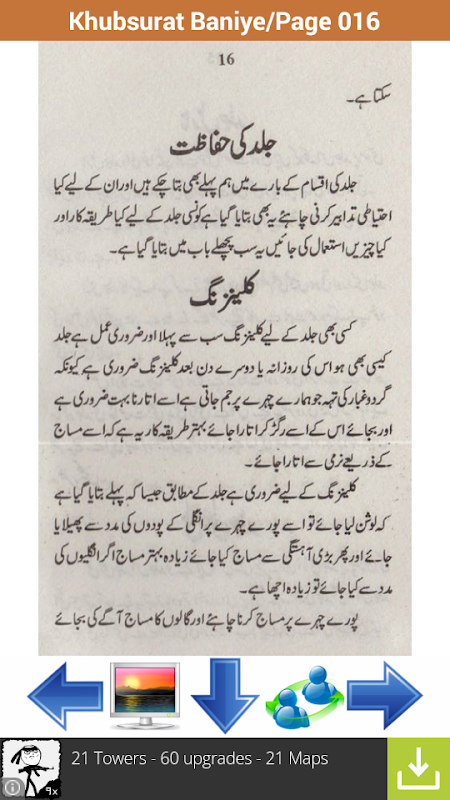 Khubsurat Baniye/Page 016
16
سکتا ہے۔
جلد کی حفاظت
جلد کی اقسام کے بارے میں ہم پہلے بھی بتا چکے ہیں اور ان کے لیے کیا
احتیاطی تدابیر کرنی چاہئے یہ بھی بتایا گیا ہے کونسی جلد کے لیے کیا طریقہ کار اور
کیا چیزیں استعمال کی جائیں یہ سب پچھلے باب میں بتایا گیا ہے۔
کلینزنگ
کسی بھی جلد کے لیے کلینزنگ سب سے پہلا اور ضروری عمل ہے جلد
کیسی بھی ہو اس کی روزانہ یا دوسرے دن بعد کلینزنگ ضروری ہے کیونکہ
گرد و غبار کی تہہ جو ہمارے چہرے پر جم جاتی ہے اسے اتارنا بہت ضروری ہے
اور بجائے اس کے اسے رگڑ کر اتارا جائے بہتر طریقہ کار یہ ہے کہ اسے مساج
کے ذریعے نرمی سے اتارا جائے۔
کلینزنگ کے لیے ضروری ہے جلد کے مطابق جیسا کہ پہلے بتایا گیا ہے
کہ لوشن لیا جائے تو اسے پورے چہرے پر انگلی کے پوروں کی مدد سے پھیلایا
جائے اور پھر بڑی آہستگی سے مساج کیا جائے زیادہ بہتر مساج اگر انگلیوں کی
مدد سے کیا جائے تو زیادہ اچھا ہے۔
پورے چہرے پر مساج کرنا چاہئے اور گالوں کا مساج آگے کی بجائے
21 Towers - 60 upgrades - 21 Maps
9x